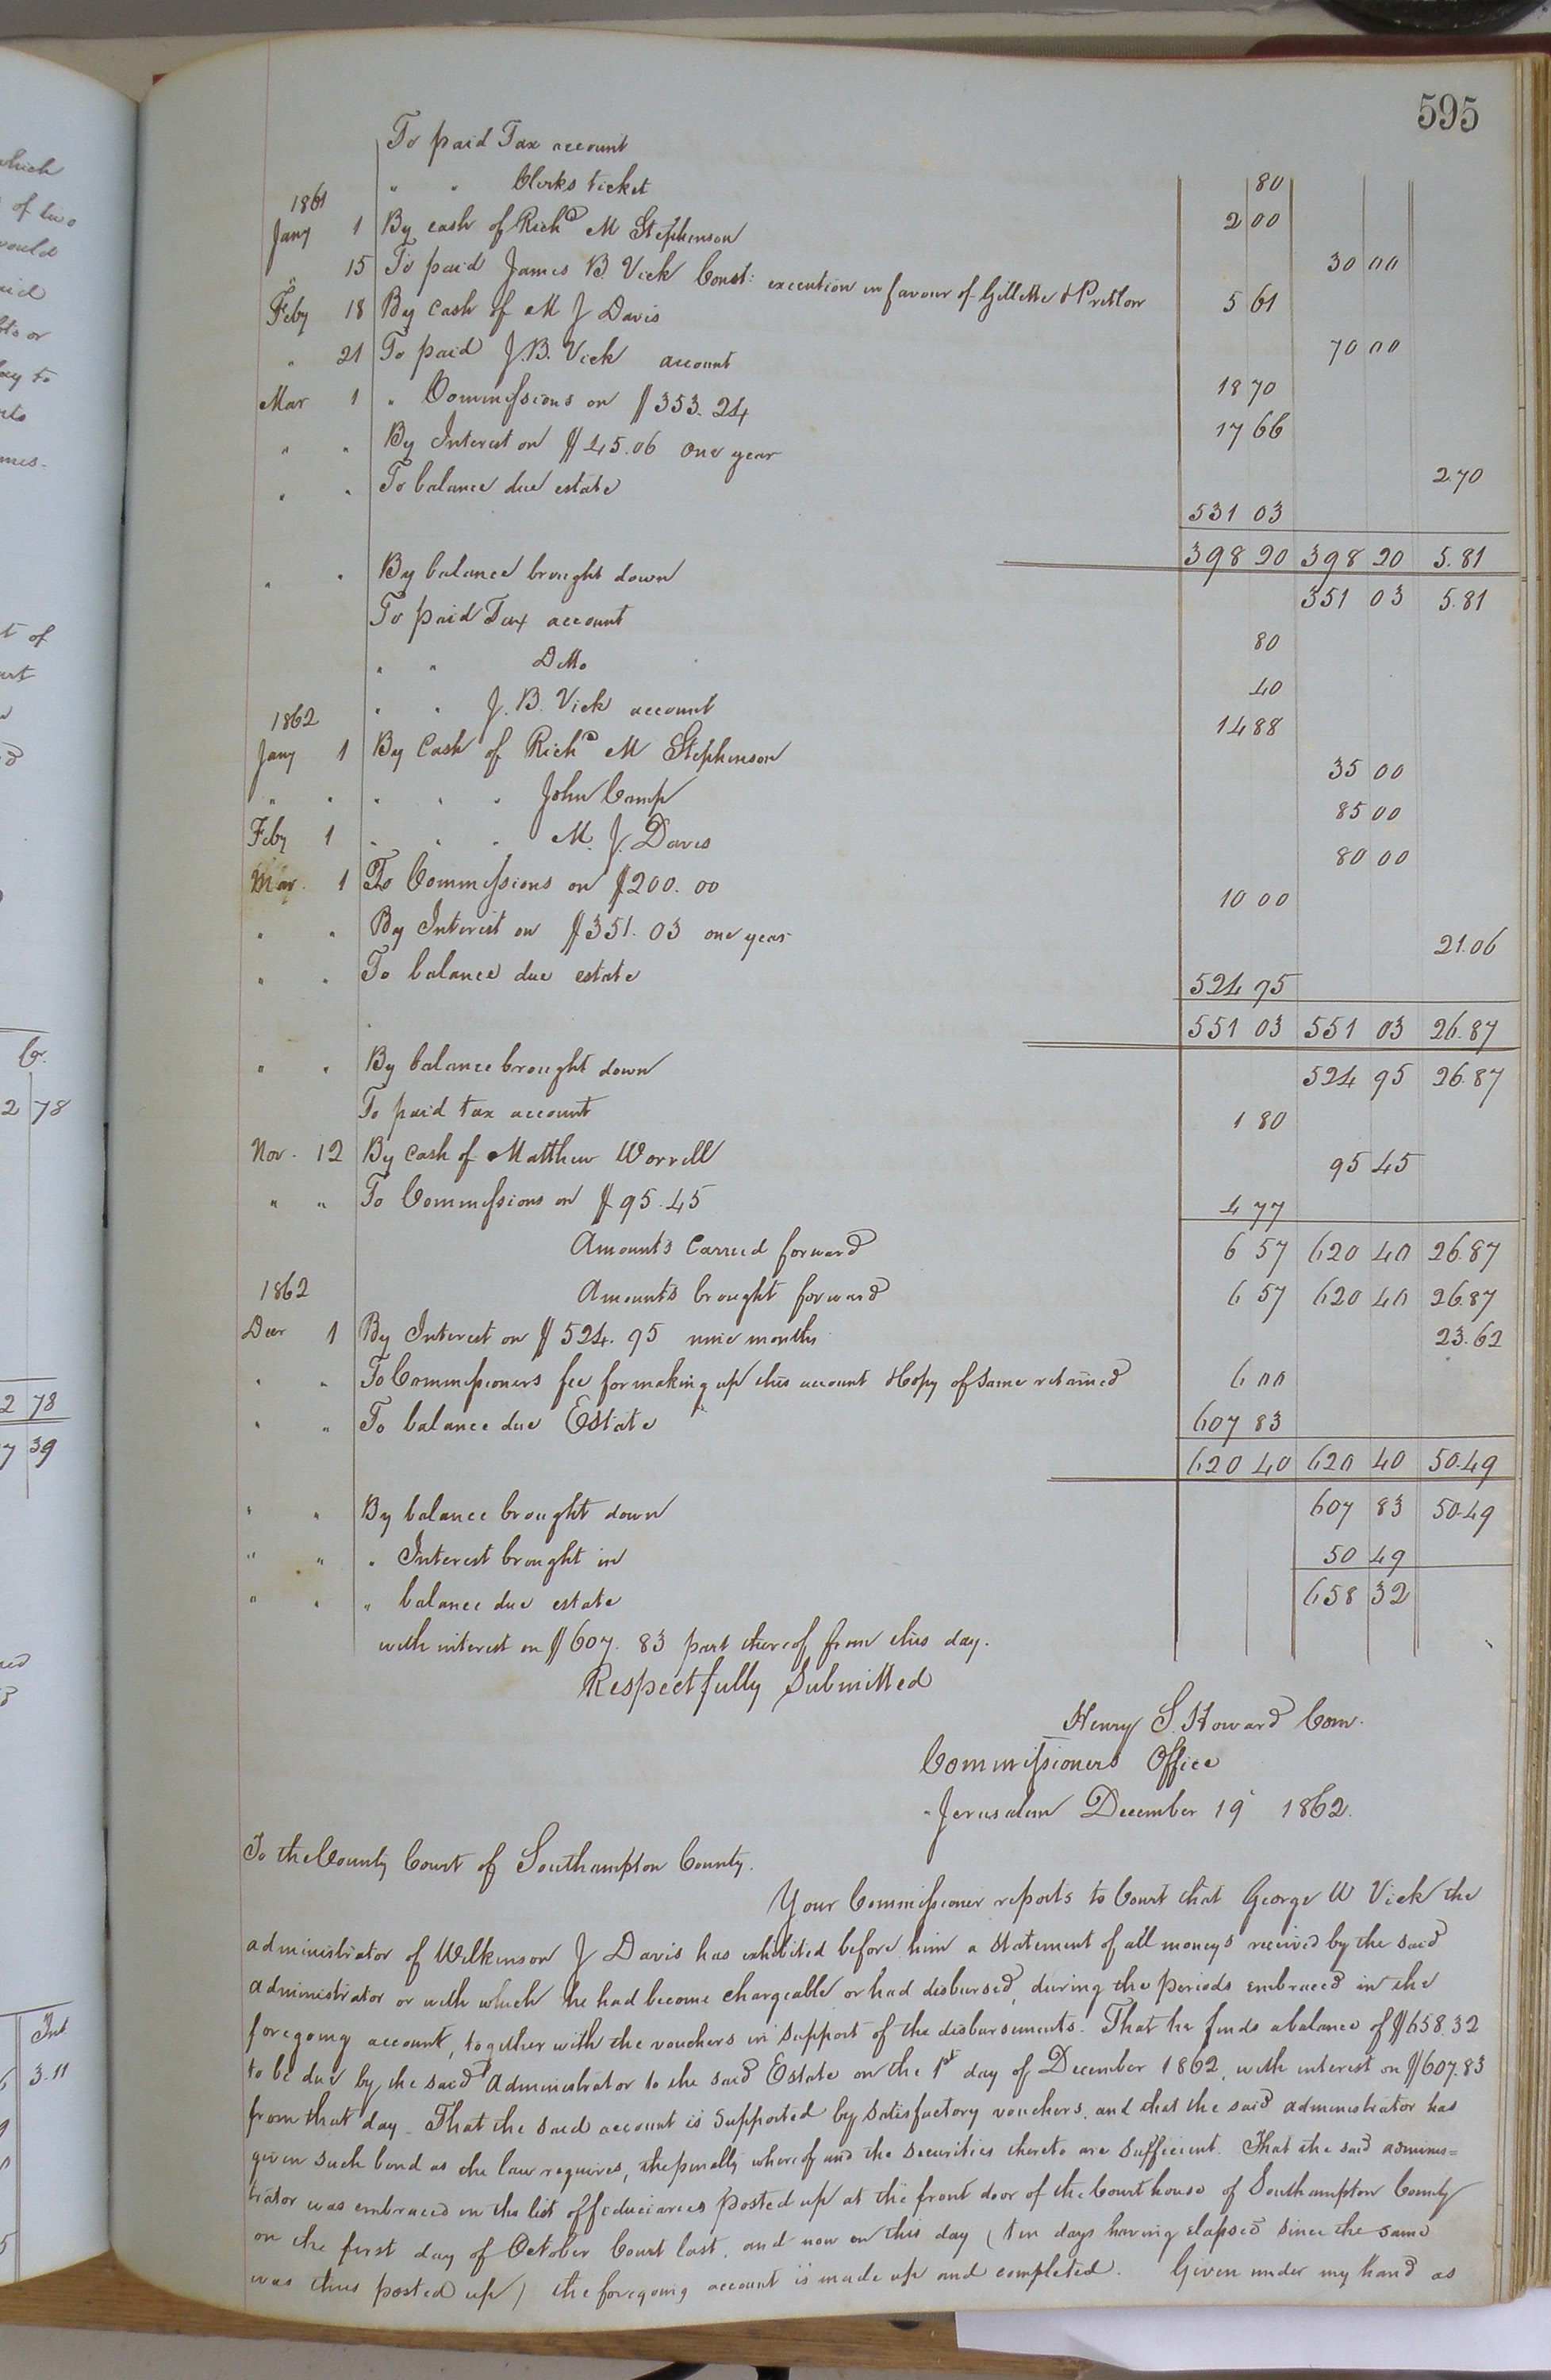 which
of two
would
aid
bts or
ay to
t of
Cr.
2 78
2 78
7 39
Int
3.11
595
To paid Tax account 80
" " Clerks ticket 2 00
1861
Jany 1 By cash of Richd M Stephenson 30 00
" 15 To paid James B. Vick Const: execution in favour of Gillette & Pretlow 5 61
Feby 18 By cash of M J Davis 70 00
" 21 To paid J.B. Vick account 18 70
Mar 1 " Commissions on $353.24 17 66
" " By Interest on $45.06 one year 2.70
" " To balance due estate 531 03
398 20 398 20 5.81
" " By balance brought down 351 03 5.81
To paid Tax account 80
" " Ditto 40
" " J. B. Vick account 14 88
1862
Jany 1 By Cash of Richd M Stephenson 35 00
" " " " " John Camp 85 00
Feby 1 " " " M. J. Davis 80 00
Mar. 1 To Commissions on $200.00 10 00
" " By Interest on $351.03 one year 21.06
" " To balance due estate 524 95
551 03 551 03 26.87
" " By balance brought down 524 95 26.87
To paid tax account 1 80
Nov. 12 By cash of Matthew Worrell 95 45
" " To Commissions on $95.45 4 77
Amounts carried forward 6 57 620 40 26.87
1862 Amounts brought forward 6 57 620 40 26.87
Decr 1 By Interest on $524.95 nine months 23.62
" " To Commissioners fee for making up this account & Copy of same retained 6 00
" " To balance due Estate 607 83
620 40 620 40 50.49
" " By balance brought down 607 83 50.49
" " " Interest brought in 50 49
" " " balance due estate 658 32
with interest on $607.83 part thereof from this day.
Respectfully Submitted
Henry S. Howard Com.
Commissioners Office
Jerusalem December 19 1862.
To the County Court of Southampton County.
Your Commissioner reports to Court that George W Vick the
administrator of Wilkinson J Davis has exhibited before him a statement of all moneys received by the said
administrator or with which he had become chargeable or had disbursed, during the periods embraced in the
foregoing account, together with the vouchers in support of the disbursements. That he finds a balance of $658.32
to be due by the said administrator to the said Estate on the 1st day of December 1862, with interest on $607.83
from that day. That the said account is supported by satisfactory vouchers, and that the said administrator has
given such bond as the law requires, the penalty whereof and the securities thereto are sufficient. That the said adminis=
trator was embraced in the list of fiduciaries posted up at the front door of the Court house of Southampton County
on the first day of October Court last, and now on this day (ten days having elapsed since the same
was thus posted up) the foregoing account is made up and completed. Given under my hand as